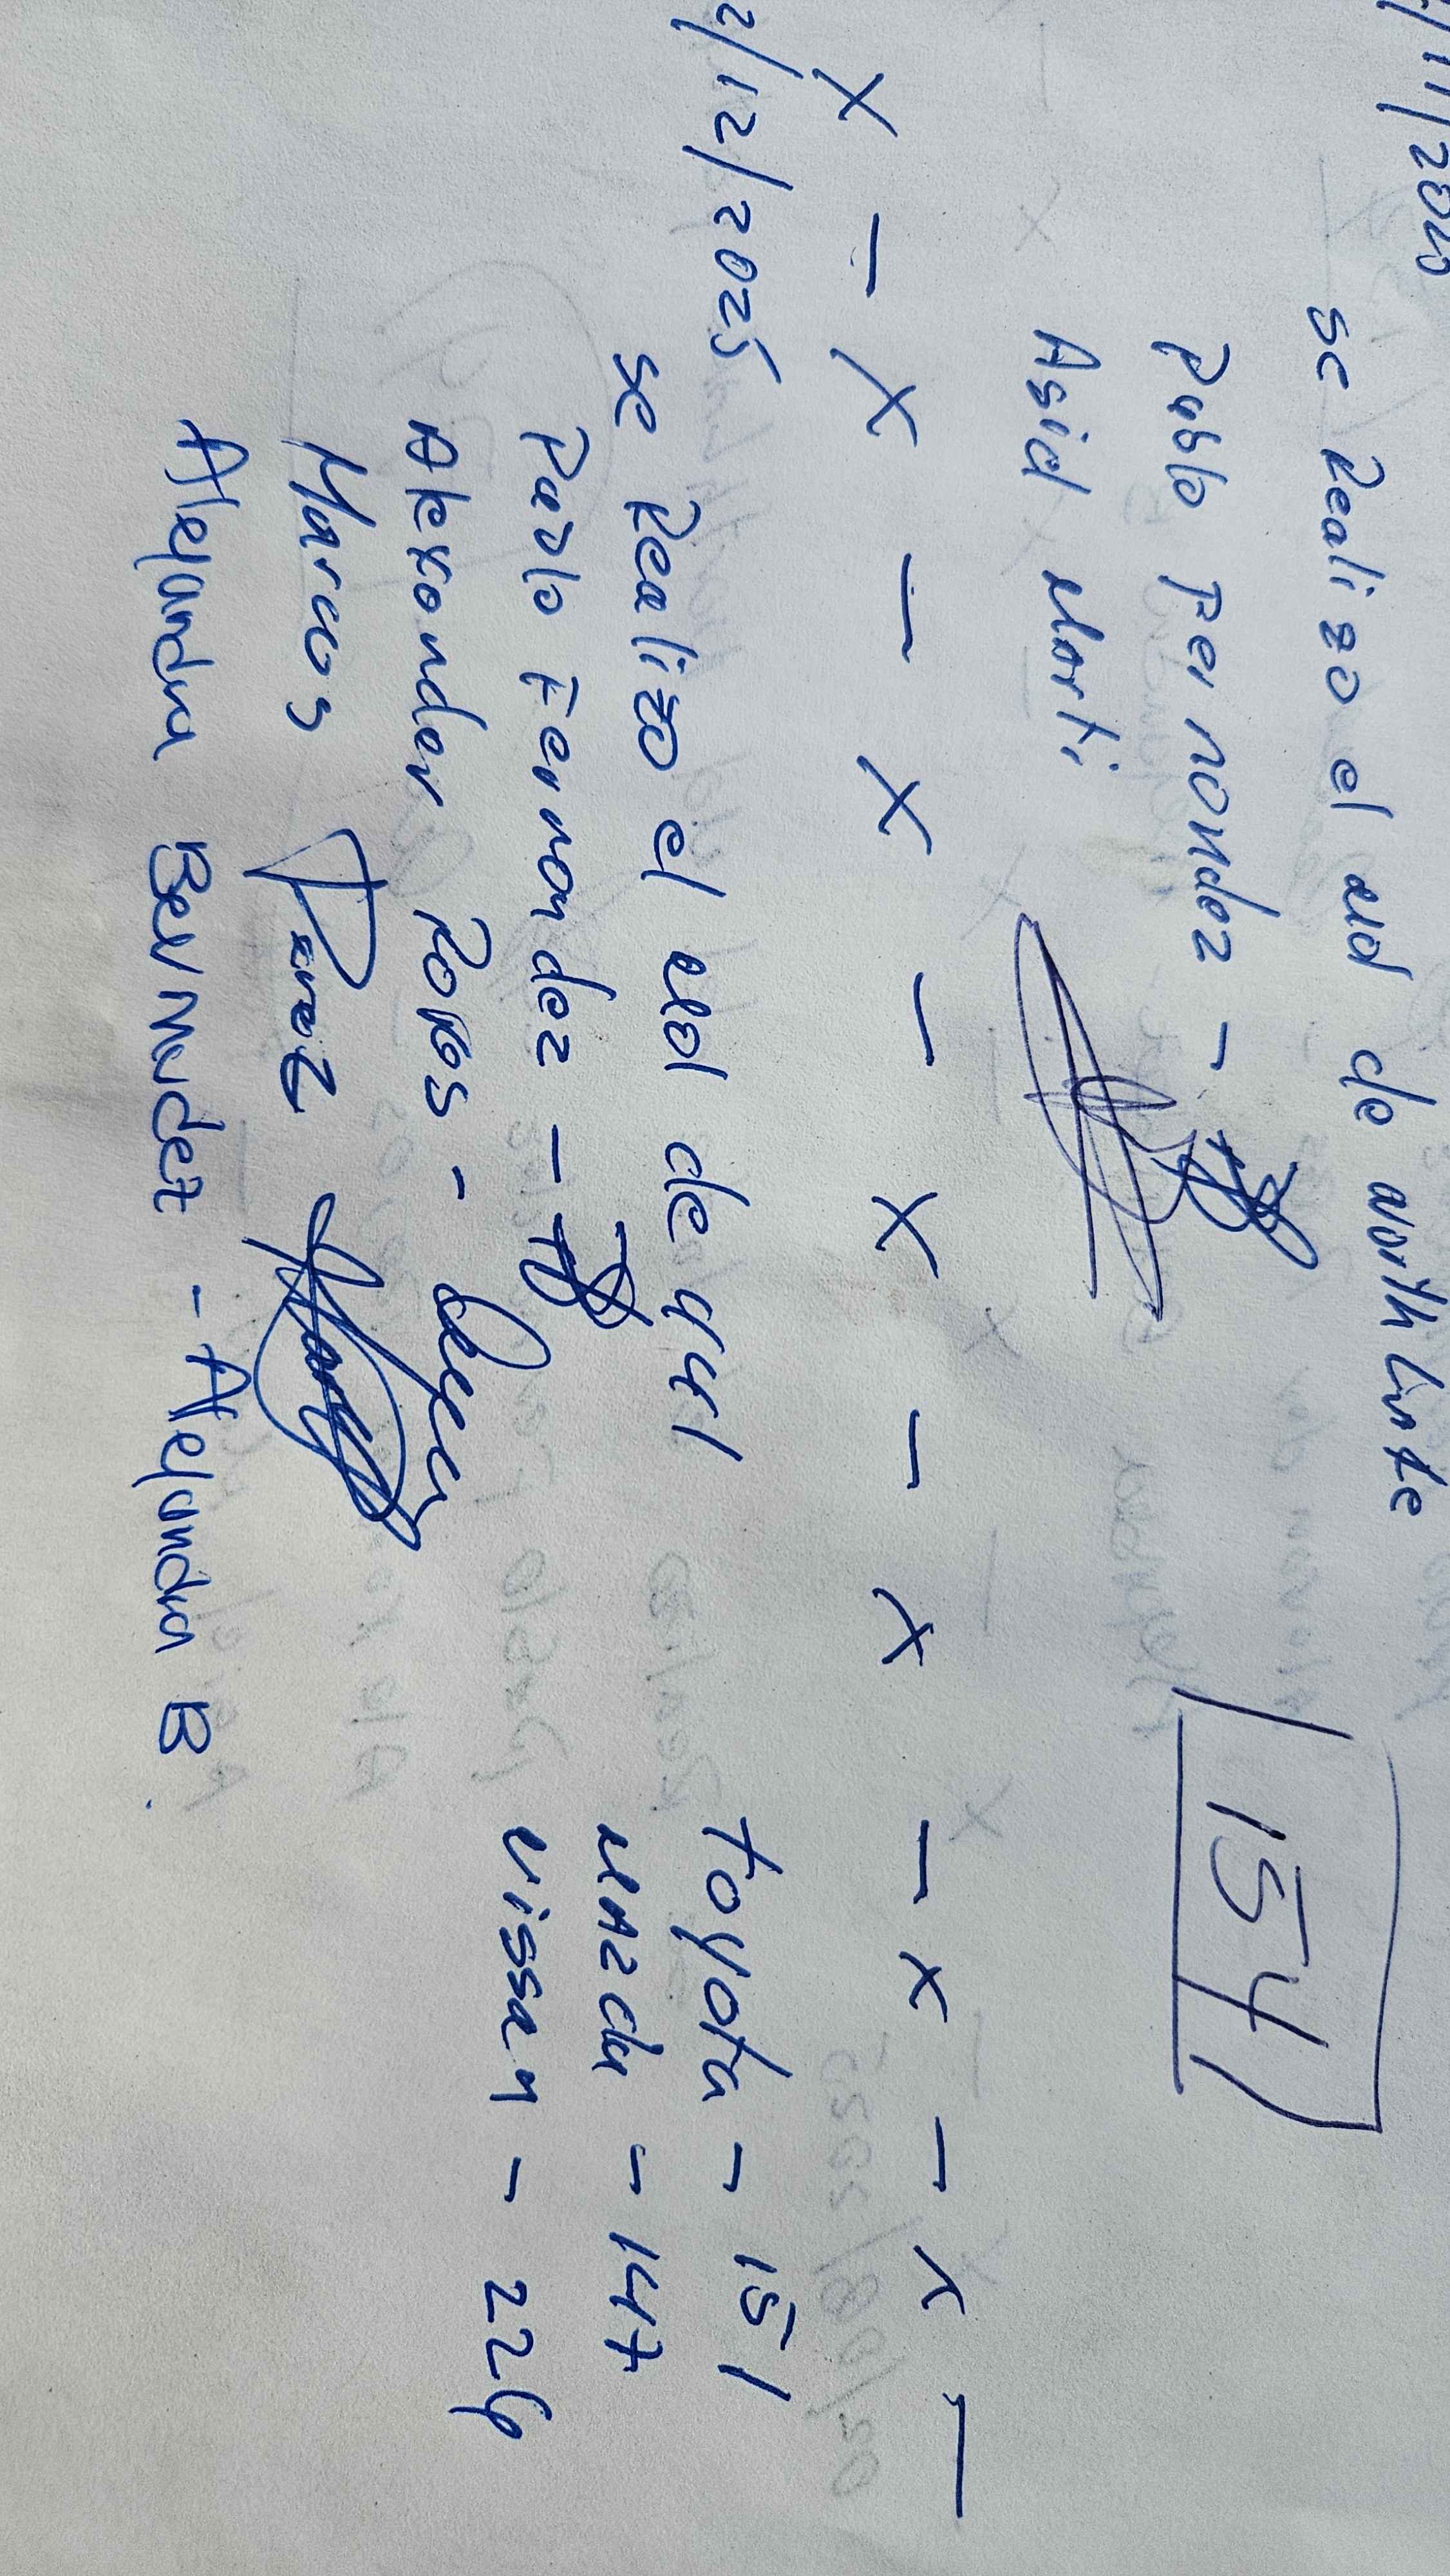 /11/2025
se Realizo el uso de north linte
Pablo Fernandez -
Asid Marti
154
x - x - x - x - x - x - x -
2/12/2025
se Realizo el uso de 441
Pablo Fernandez -
Alexander Rojas -
Marcos Perez
Alejandra Bermudez - Alejandra B.
toyota - 151
MAzda - 147
Nissan - 224